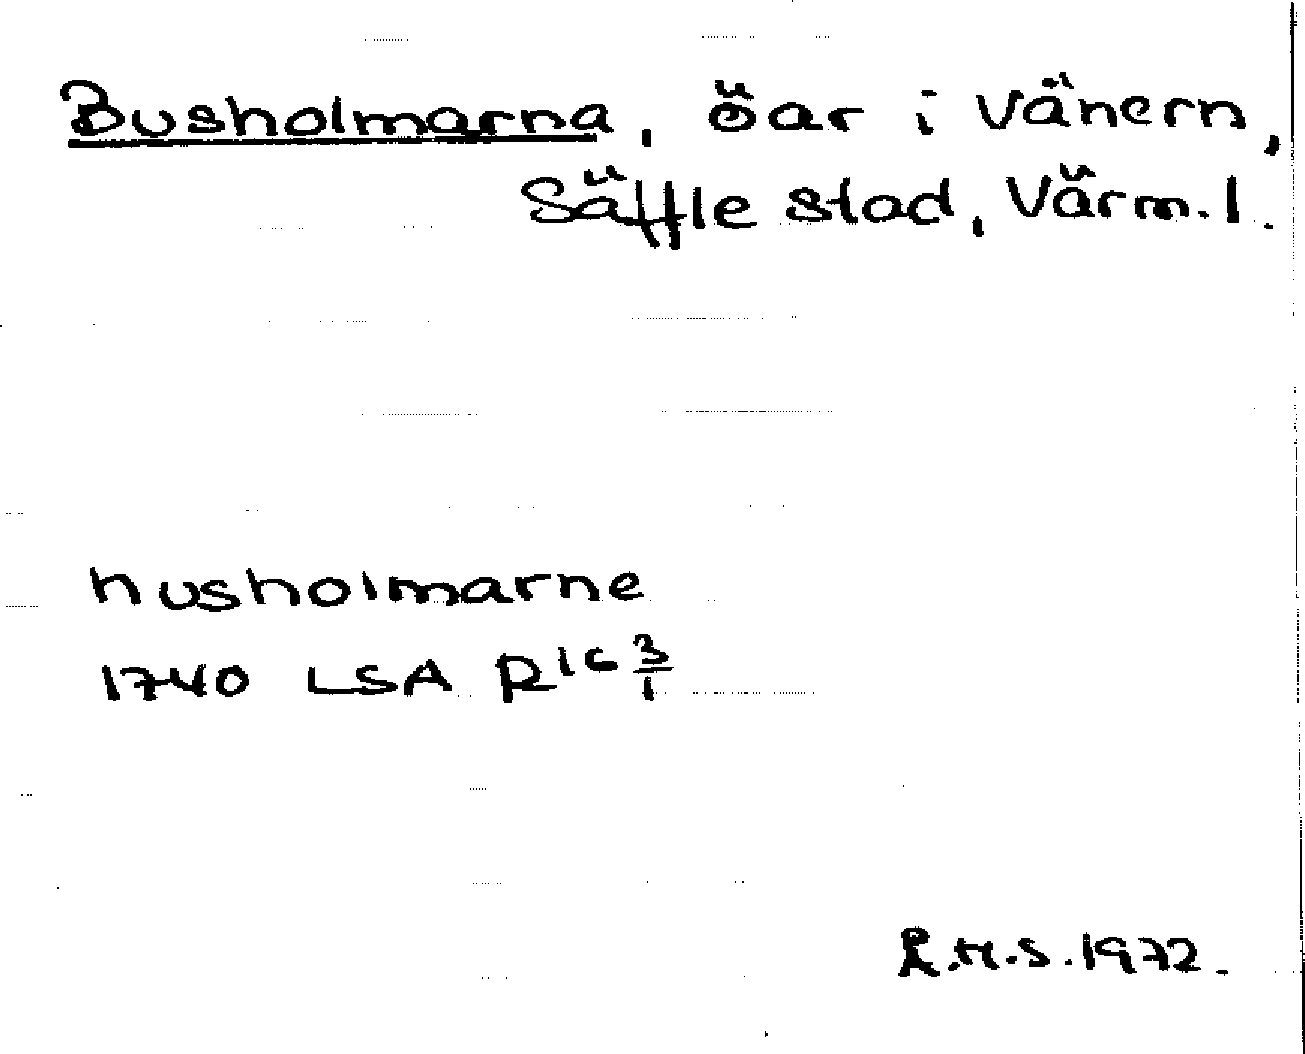 Busholmarna, öar i Vänern,
Säffle stad, Värm. l.
husholmarne
1740 LSA R16 3/1
R.H.S. 1972.